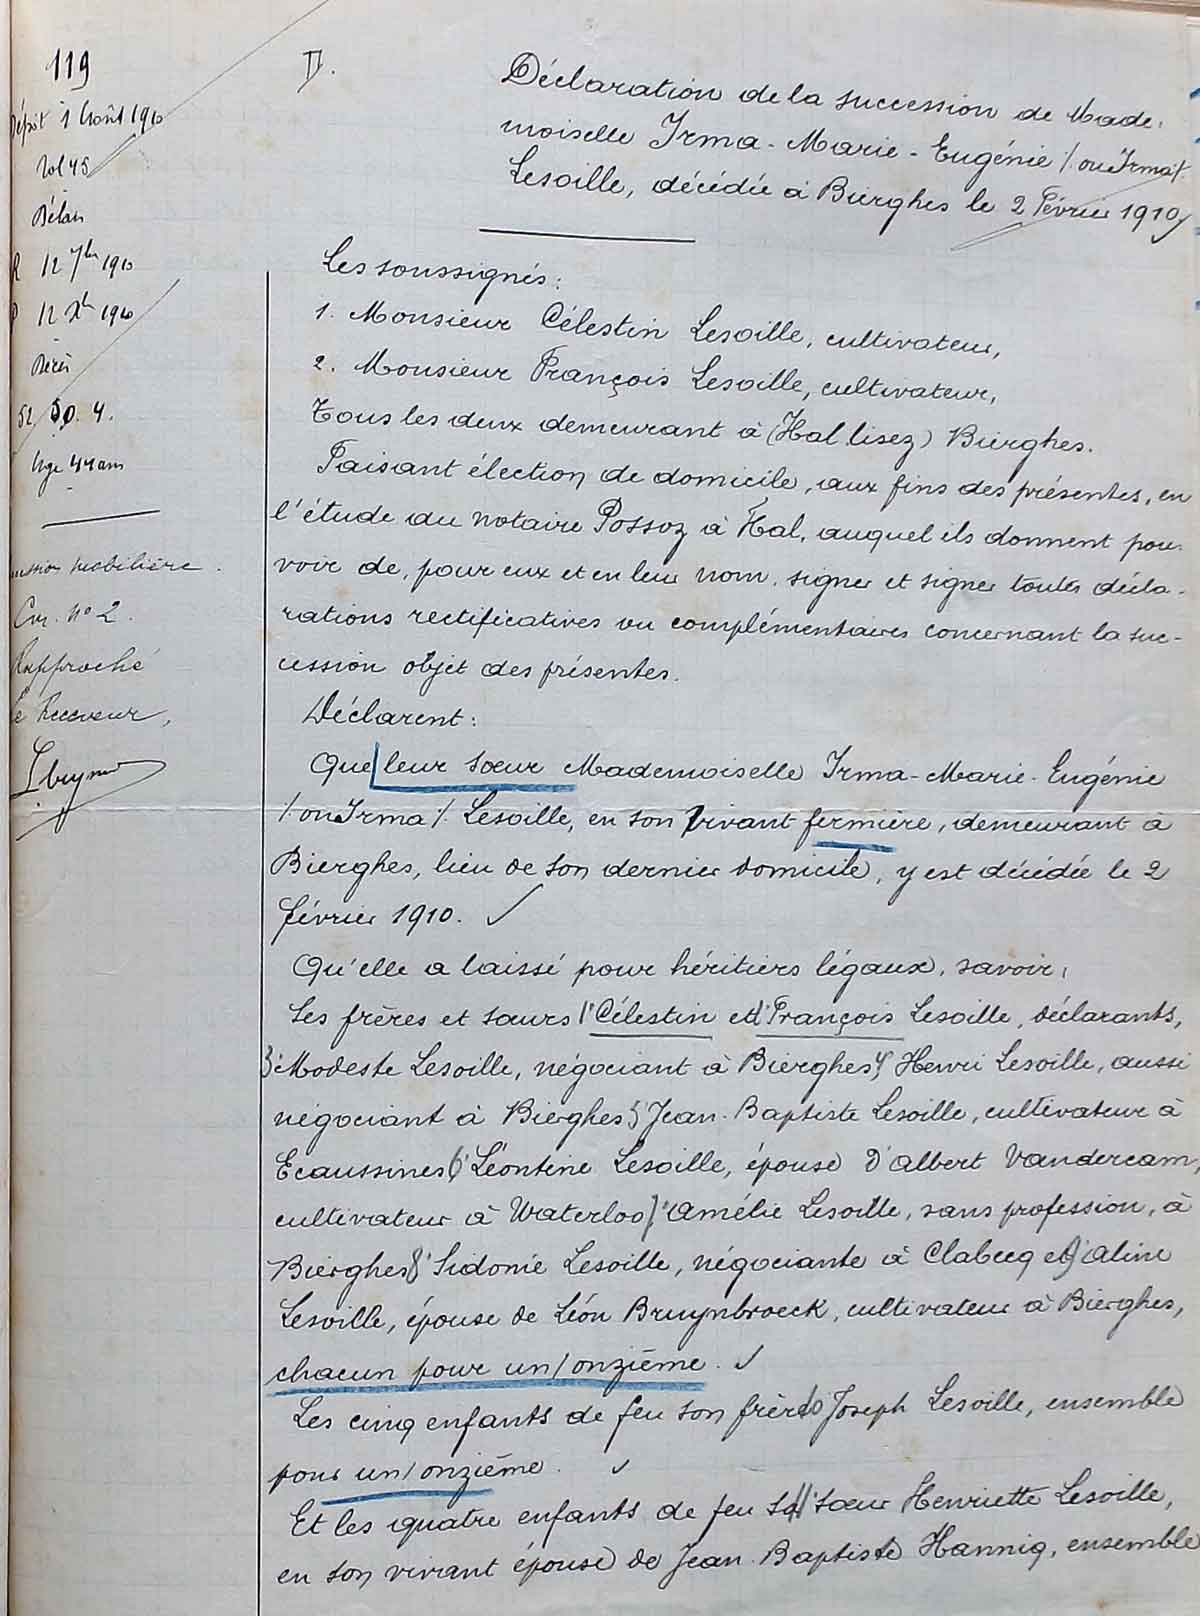 119
Dépôt 1 Août 1910
Vol 45
Délais
R 12 7bre 1910
P 12 Xbre 1910
Décès
52 50. 4.
Age 44 ans
mobilière.
Cur. N° 2.
Rapproché
Le Receveur,
D.
Déclaration de la succession de Made-
moiselle Irma-Marie-Eugénie /. ou Irma /.
Lesoille, décédée à Bierghes le 2 Février 1910,
Les soussignés:
1. Monsieur Célestin Lesoille, cultivateur,
2. Monsieur François Lesoille, cultivateur,
Tous les deux demeurant à (Hal lisez) Bierghes.
Faisant élection de domicile, aux fins des présentes, en
l'étude du notaire Possoz à Hal, auquel ils donnent pou-
voir de, pour eux et en leur nom, signer et signer toutes décla-
rations rectificatives ou complémentaires concernant la suc-
cession objet des présentes.
Déclarent:
Que leur sœur Mademoiselle Irma-Marie-Eugénie
/. ou Irma /. Lesoille, en son vivant fermière, demeurant à
Bierghes, lieu de son dernier domicile, y est décédée le 2
février 1910. ✓
Qu'elle a laissé pour héritiers légaux, savoir,
Ses frères et sœurs 1° Célestin et 2° François Lesoille, déclarants,
3° Modeste Lesoille, négociant à Bierghes 4° Henri Lesoille, aussi
négociant à Bierghes 5° Jean-Baptiste Lesoille, cultivateur à
Ecaussines 6° Léontine Lesoille, épouse d'Albert Vandercam,
cultivateur à Waterloo 7° Amélie Lesoille, sans profession, à
Bierghes 8° Sidonie Lesoille, négociante à Clabecq et 9° Aline
Lesoille, épouse de Léon Bruynbroeck, cultivateur à Bierghes,
chacun pour un/onzième. ✓
Les cinq enfants de feu son frère 10 Joseph Lesoille, ensemble
pour un/onzième. ✓
Et les quatre enfants de feu sa 11° sœur Henriette Lesoille,
en son vivant épouse de Jean-Baptiste Hanniq, ensemble